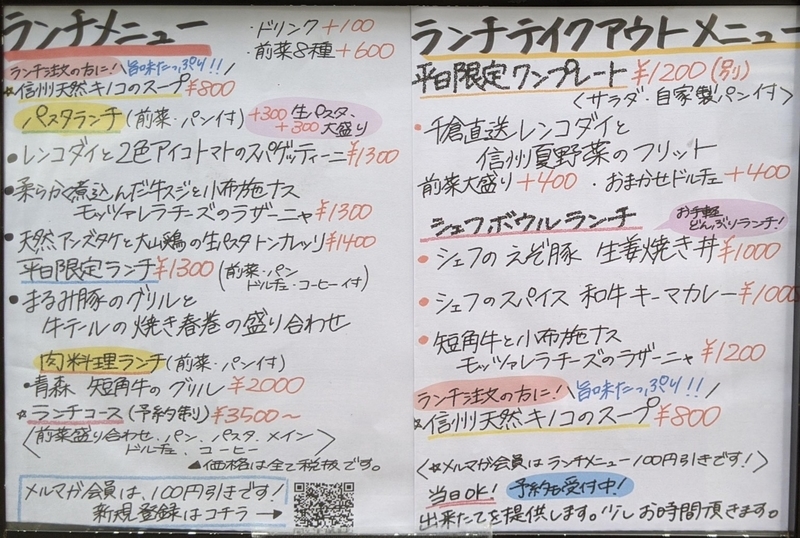 ランチメニュー
・ドリンク +100
・前菜8種 +600
ランチ注文の方に! 旨味たっぷり!!
☆信州天然キノコのスープ ¥800
パスタランチ (前菜・パン付)
+300 生パスタ、
+300 大盛り
・レンコダイと2色アイコトマトのスパゲッティーニ ¥1300
・柔らかく煮込んだ牛スジと小布施ナス
モッツァレラチーズのラザーニャ ¥1300
・天然アンズタケと大山鶏の生パスタ トンナレッリ ¥1400
平日限定ランチ ¥1300 (前菜・パン
ドルチェ・コーヒー付)
・まるみ豚のグリルと
牛テールの焼き春巻の盛り合わせ
肉料理ランチ (前菜・パン付)
・青森 短角牛のグリル ¥2000
☆ランチコース (予約制) ¥3500〜
〈前菜盛り合わせ、パン、パスタ、メイン
ドルチェ、コーヒー〉
▲価格は全て税抜です。
メルマガ会員は、100円引きです!
新規登録はコチラ→
ランチテイクアウトメニュー
平日限定ワンプレート ¥1200 (別)
〈サラダ・自家製パン付〉
・千倉直送レンコダイと
信州夏野菜のフリット
前菜大盛り +400 ・おまかせドルチェ +400
シェフボウルランチ
お手軽
どんぶりランチ!
・シェフの えぞ豚 生姜焼き丼 ¥1000
・シェフのスパイス 和牛キーマカレー ¥1000
・短角牛と小布施ナス
モッツァレラチーズのラザーニャ ¥1200
ランチ注文の方に! 旨味たっぷり!!
☆信州天然キノコのスープ ¥800
〈☆メルマガ会員はランチメニュー100円引きです!〉
当日OK! 予約も受付中!
出来たてを提供します。少しお時間頂きます。